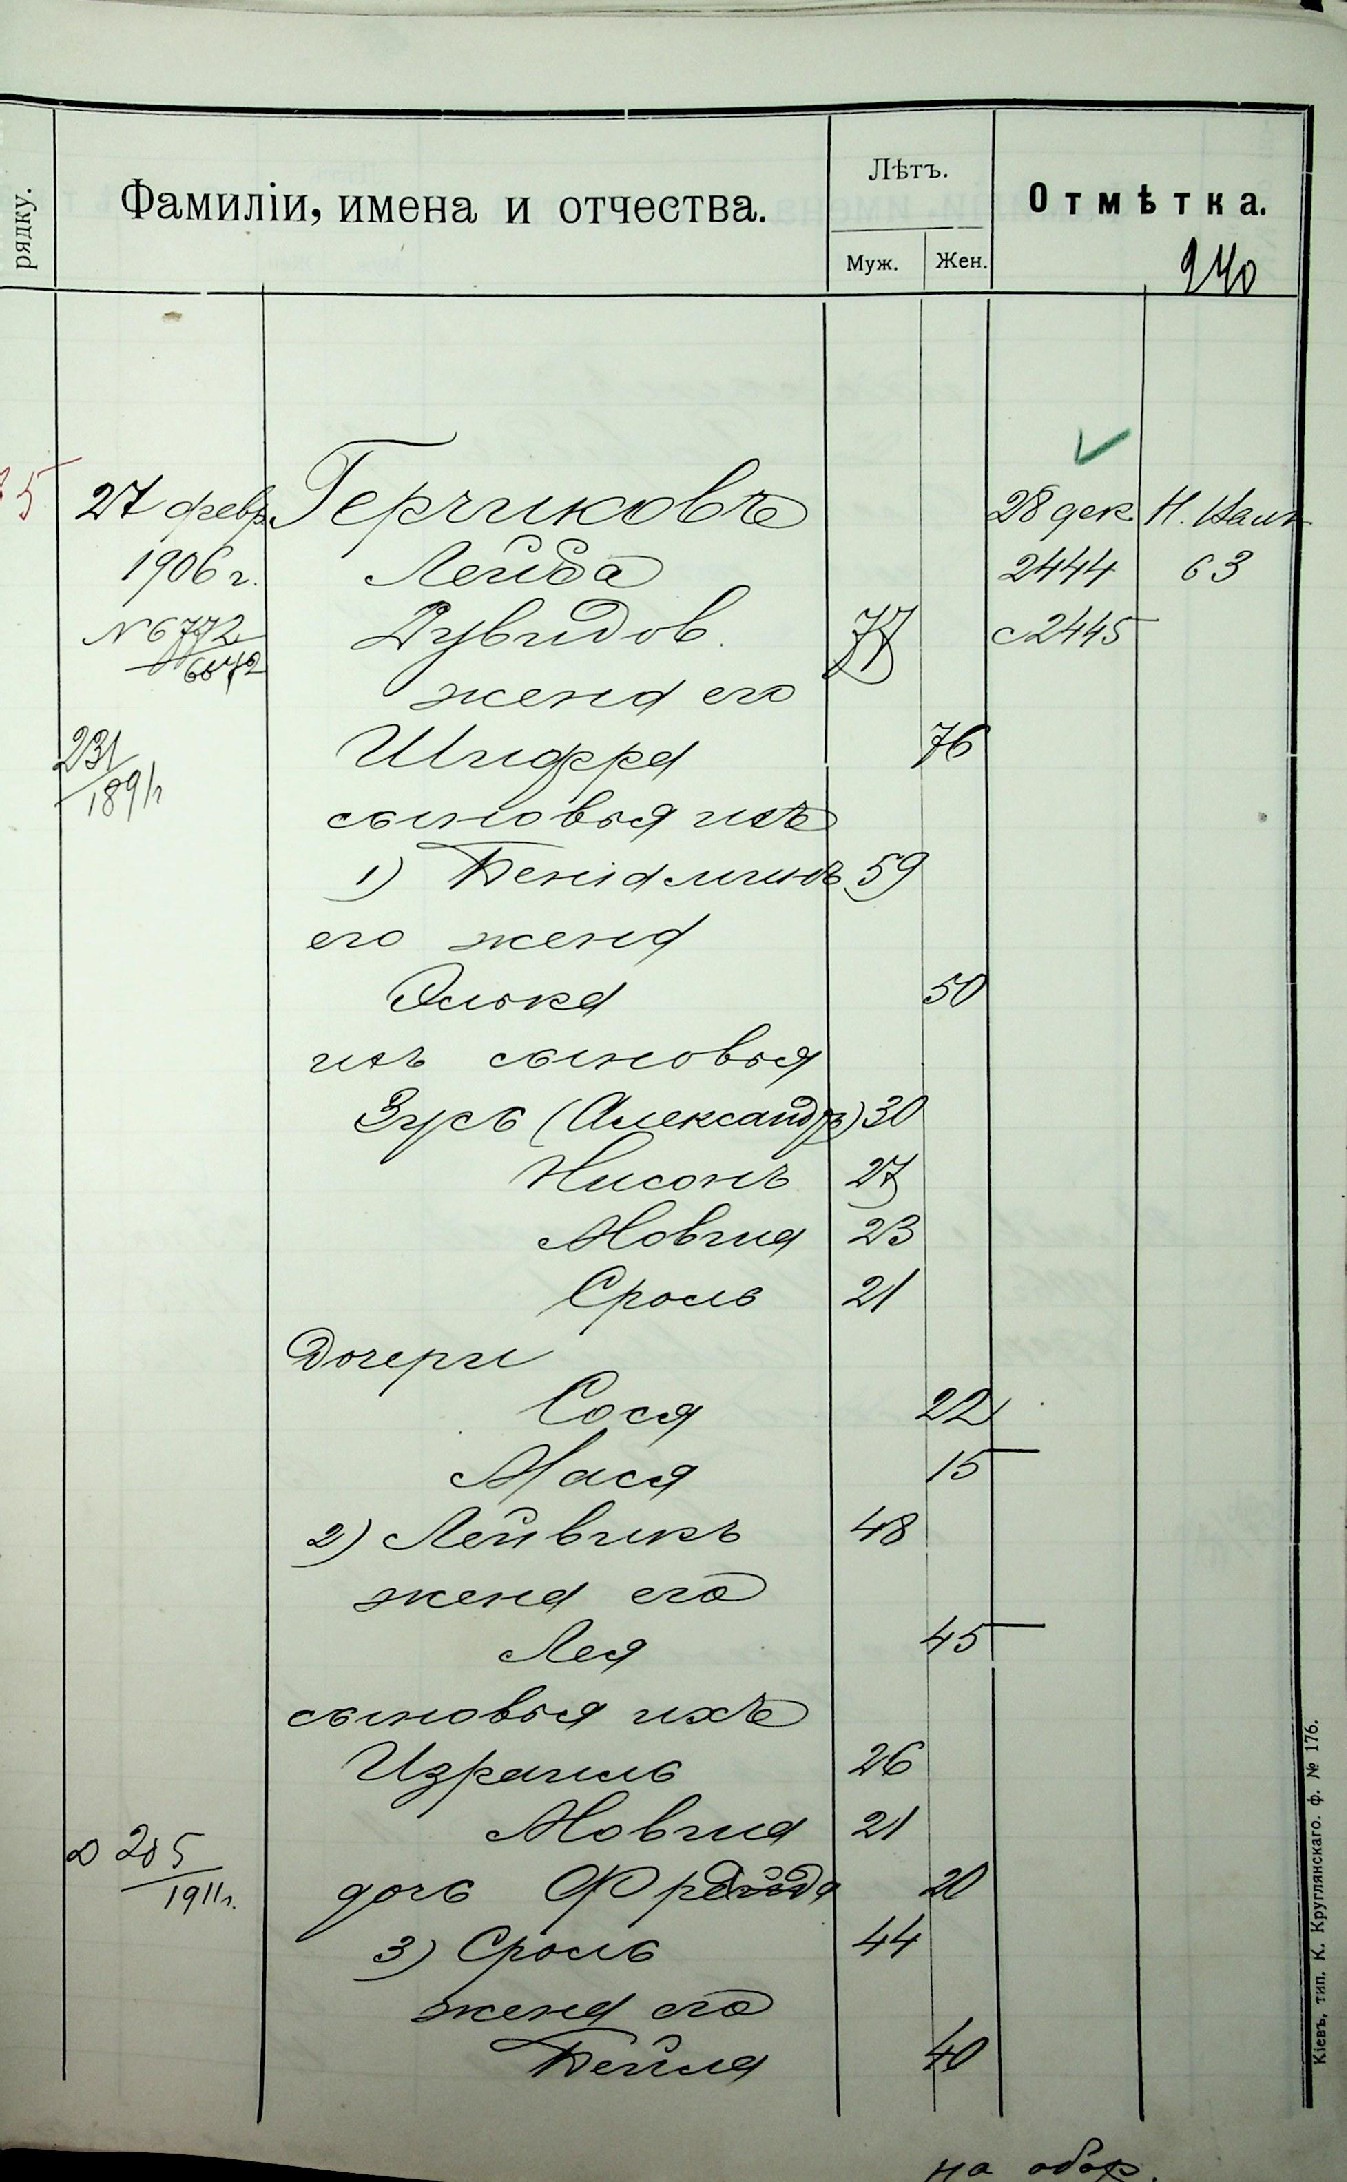 рядку.
Фамиліи, имена и отчества.
Лѣтъ.
Муж. Жен.
Отмѣтка.
240
5 27 февр. Герчиковъ 28 дек. Н.
1906 г. Лейба 2444 63
№ 6772 Дувидов. 77 с 2445
6672
жена его
231 Шифра 76
1891 г
сыновья ихъ
1) Беніаминъ 59
его жена
Элька 50
ихъ сыновья
Зусь (Александръ) 30
Нисонъ 27
Мовша 23
Сроль 21
Дочери
Сося 22
Мася 15
2) Лейвикъ 48
жена его
Лея 45
сыновья ихъ
Израиль 26
Мовша 21
205
1911 г.
дочь 20
3) Сроль 44
жена его
Бейля 40
на обор.
Кіевъ, тип. К. Круглянскаго. ф. № 176.